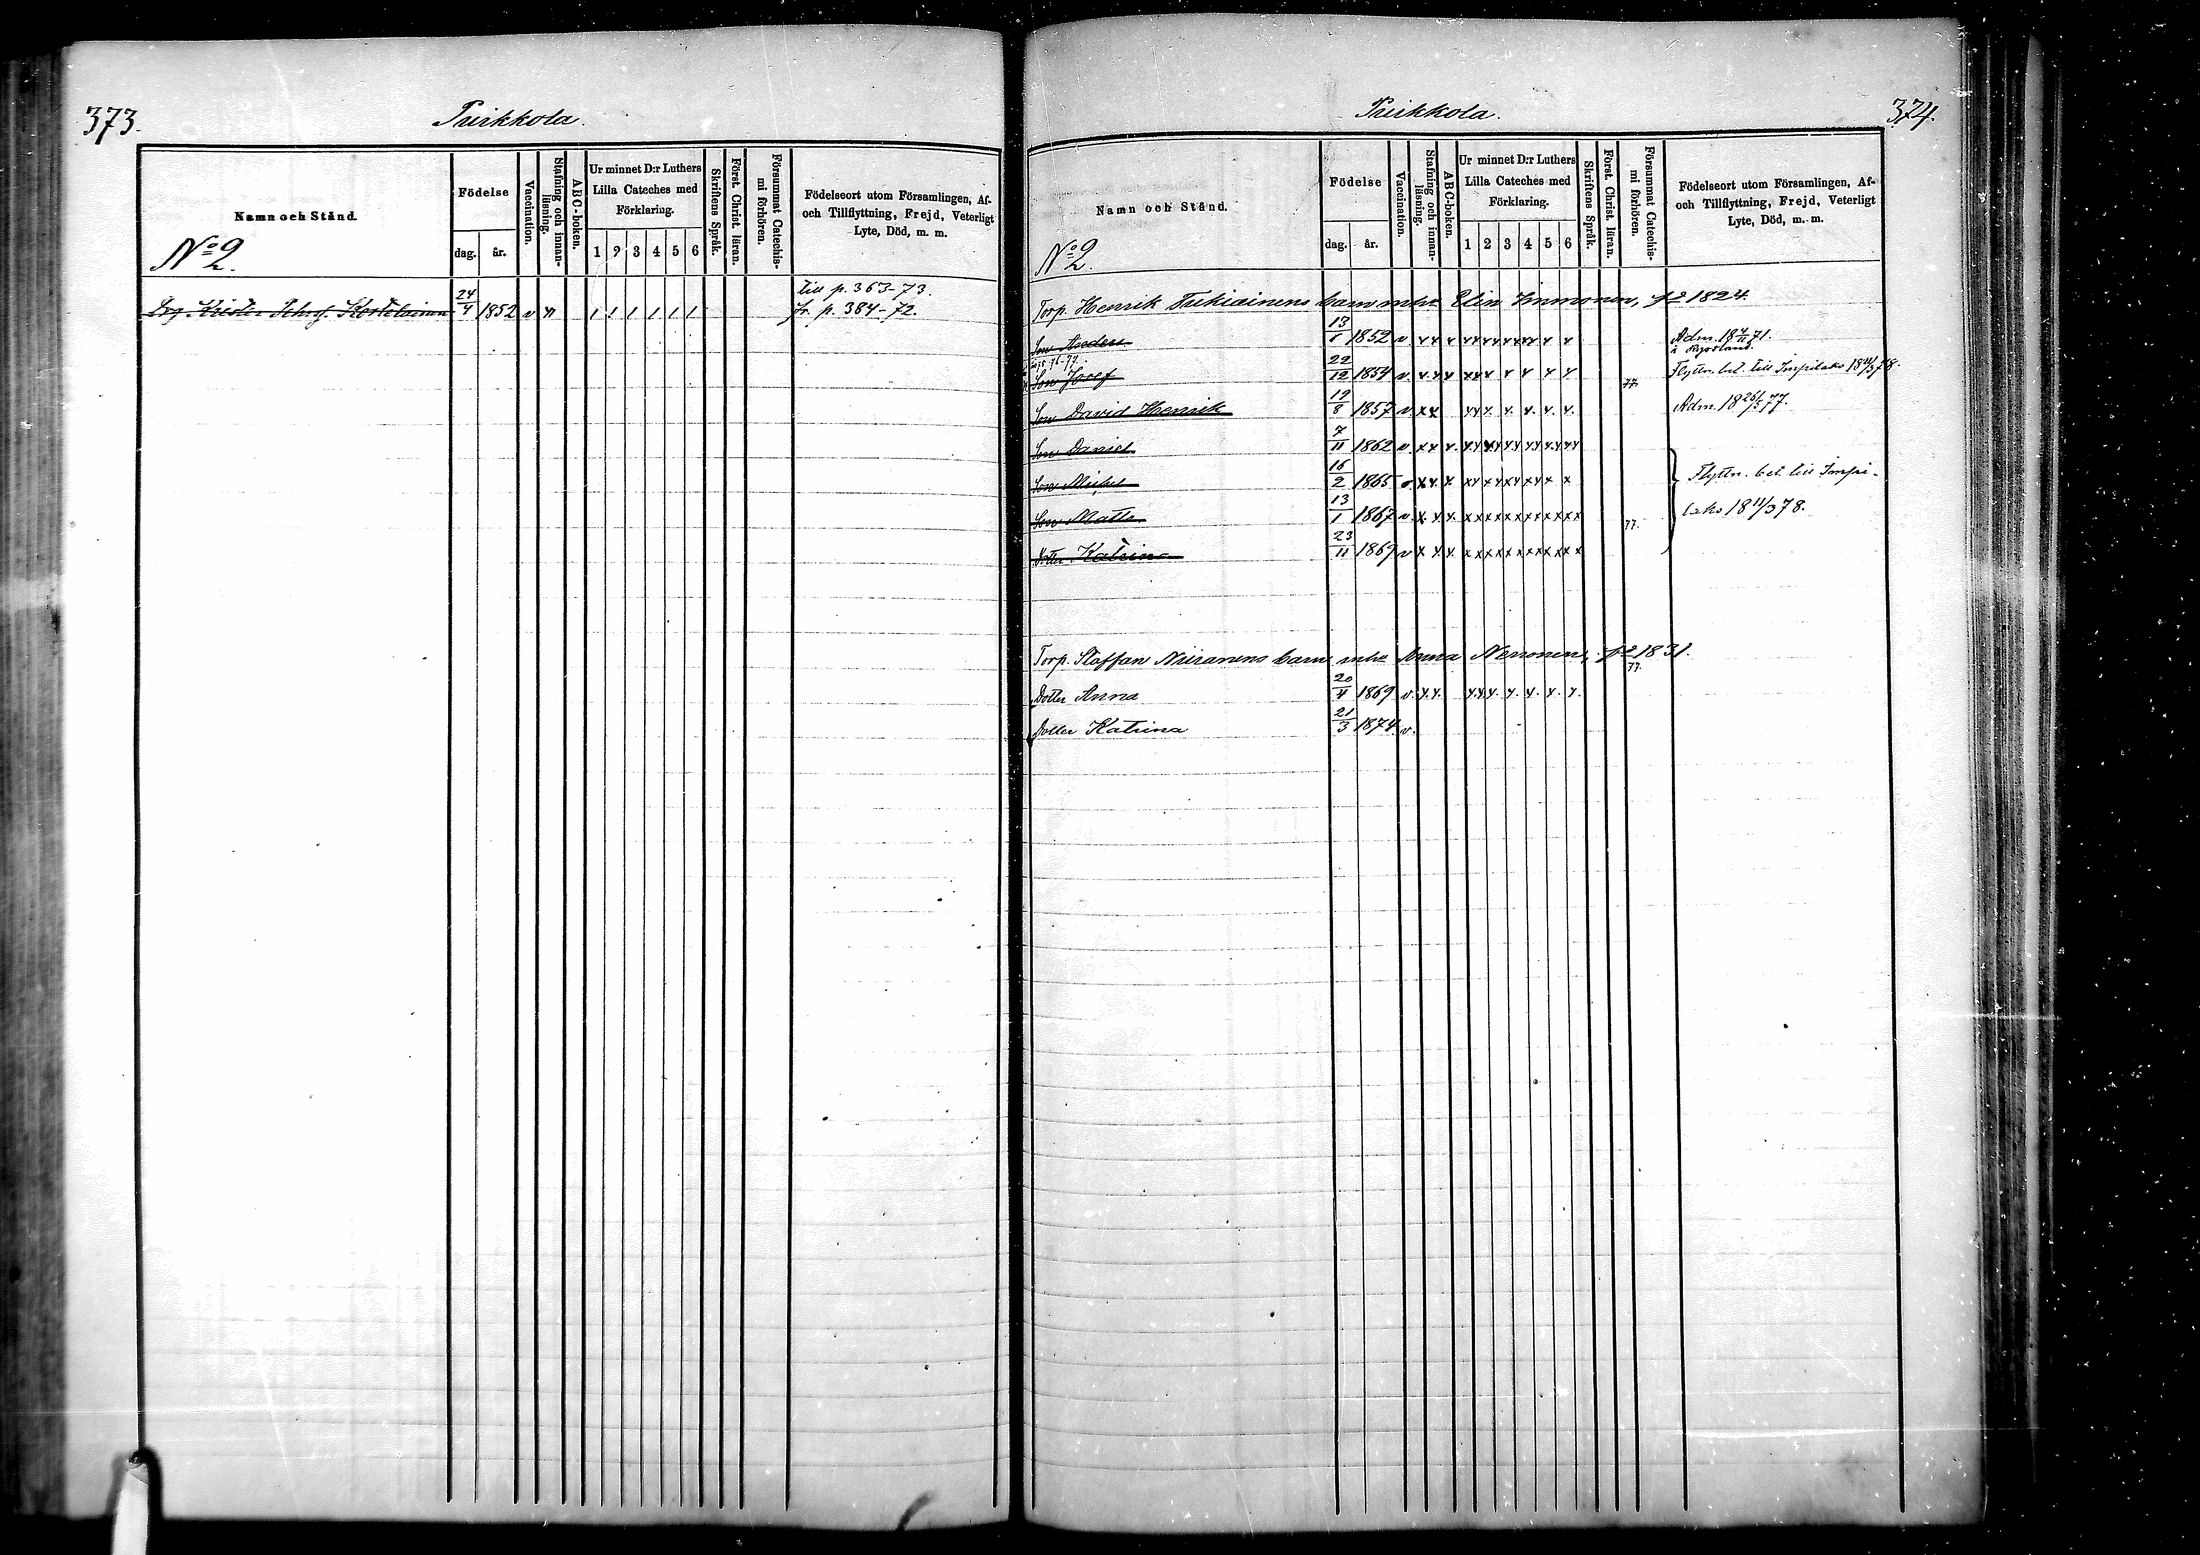 373.
Puikkola.
Namn och Stånd.
Födelse
dag.
år.
Vaccination.
Stafning och innan-
läsning.
ABC-boken.
Ur minnet D:r Luthers
Lilla Cateches med
Förklaring.
1 2 3 4 5 6
Skriftens Språk.
Först. Christ. läran.
Försummat Catechis-
mi förhören.
Födelseort utom Församlingen, Af-
och Tillflyttning, Frejd, Veterligt
Lyte, Död, m. m.
No 2.
till p. 363-73.
24/4 1852 v fr. p. 384-72.
Puikkola.
374.
Namn och Stånd.
Födelse
dag.
år.
Vaccination.
Stafning och innan-
läsning.
ABC-boken.
Ur minnet D:r Luthers
Lilla Cateches med
Förklaring.
1 2 3 4 5 6
Skriftens Språk.
Först. Christ. läran.
Försummat Catechis-
mi förhören.
Födelseort utom Församlingen, Af-
och Tillflyttning, Frejd, Veterligt
Lyte, Död, m. m.
No 2.
Torp. Henrik Tukiainens barn mhu Elin Immonen, f 1824.
Son Anders 13/1 1852 v Adm. 18 71.
i Ryssland.
Son Josef 22/12 1854 v 77. Flyttn. bet. till Impilaks 18 11/3 78.
Son David Henrik 19/8 1857 v Adm. 18 26/5 77.
Son Daniel 7/11 1862 v
Son Mikel 16/2 1865 Flyttn. bet. till Impi-
Son Matts 13/1 1867 v 77. laks 18 11/3 78.
Dotter Katrina 23/11 1869 v
Torp. Staffan Niiranens barn mhu Anna Neuvonen, f 1831.
77.
Dotter Anna 20/4 1869 v
Dotter Katrina 21/3 1874 v.